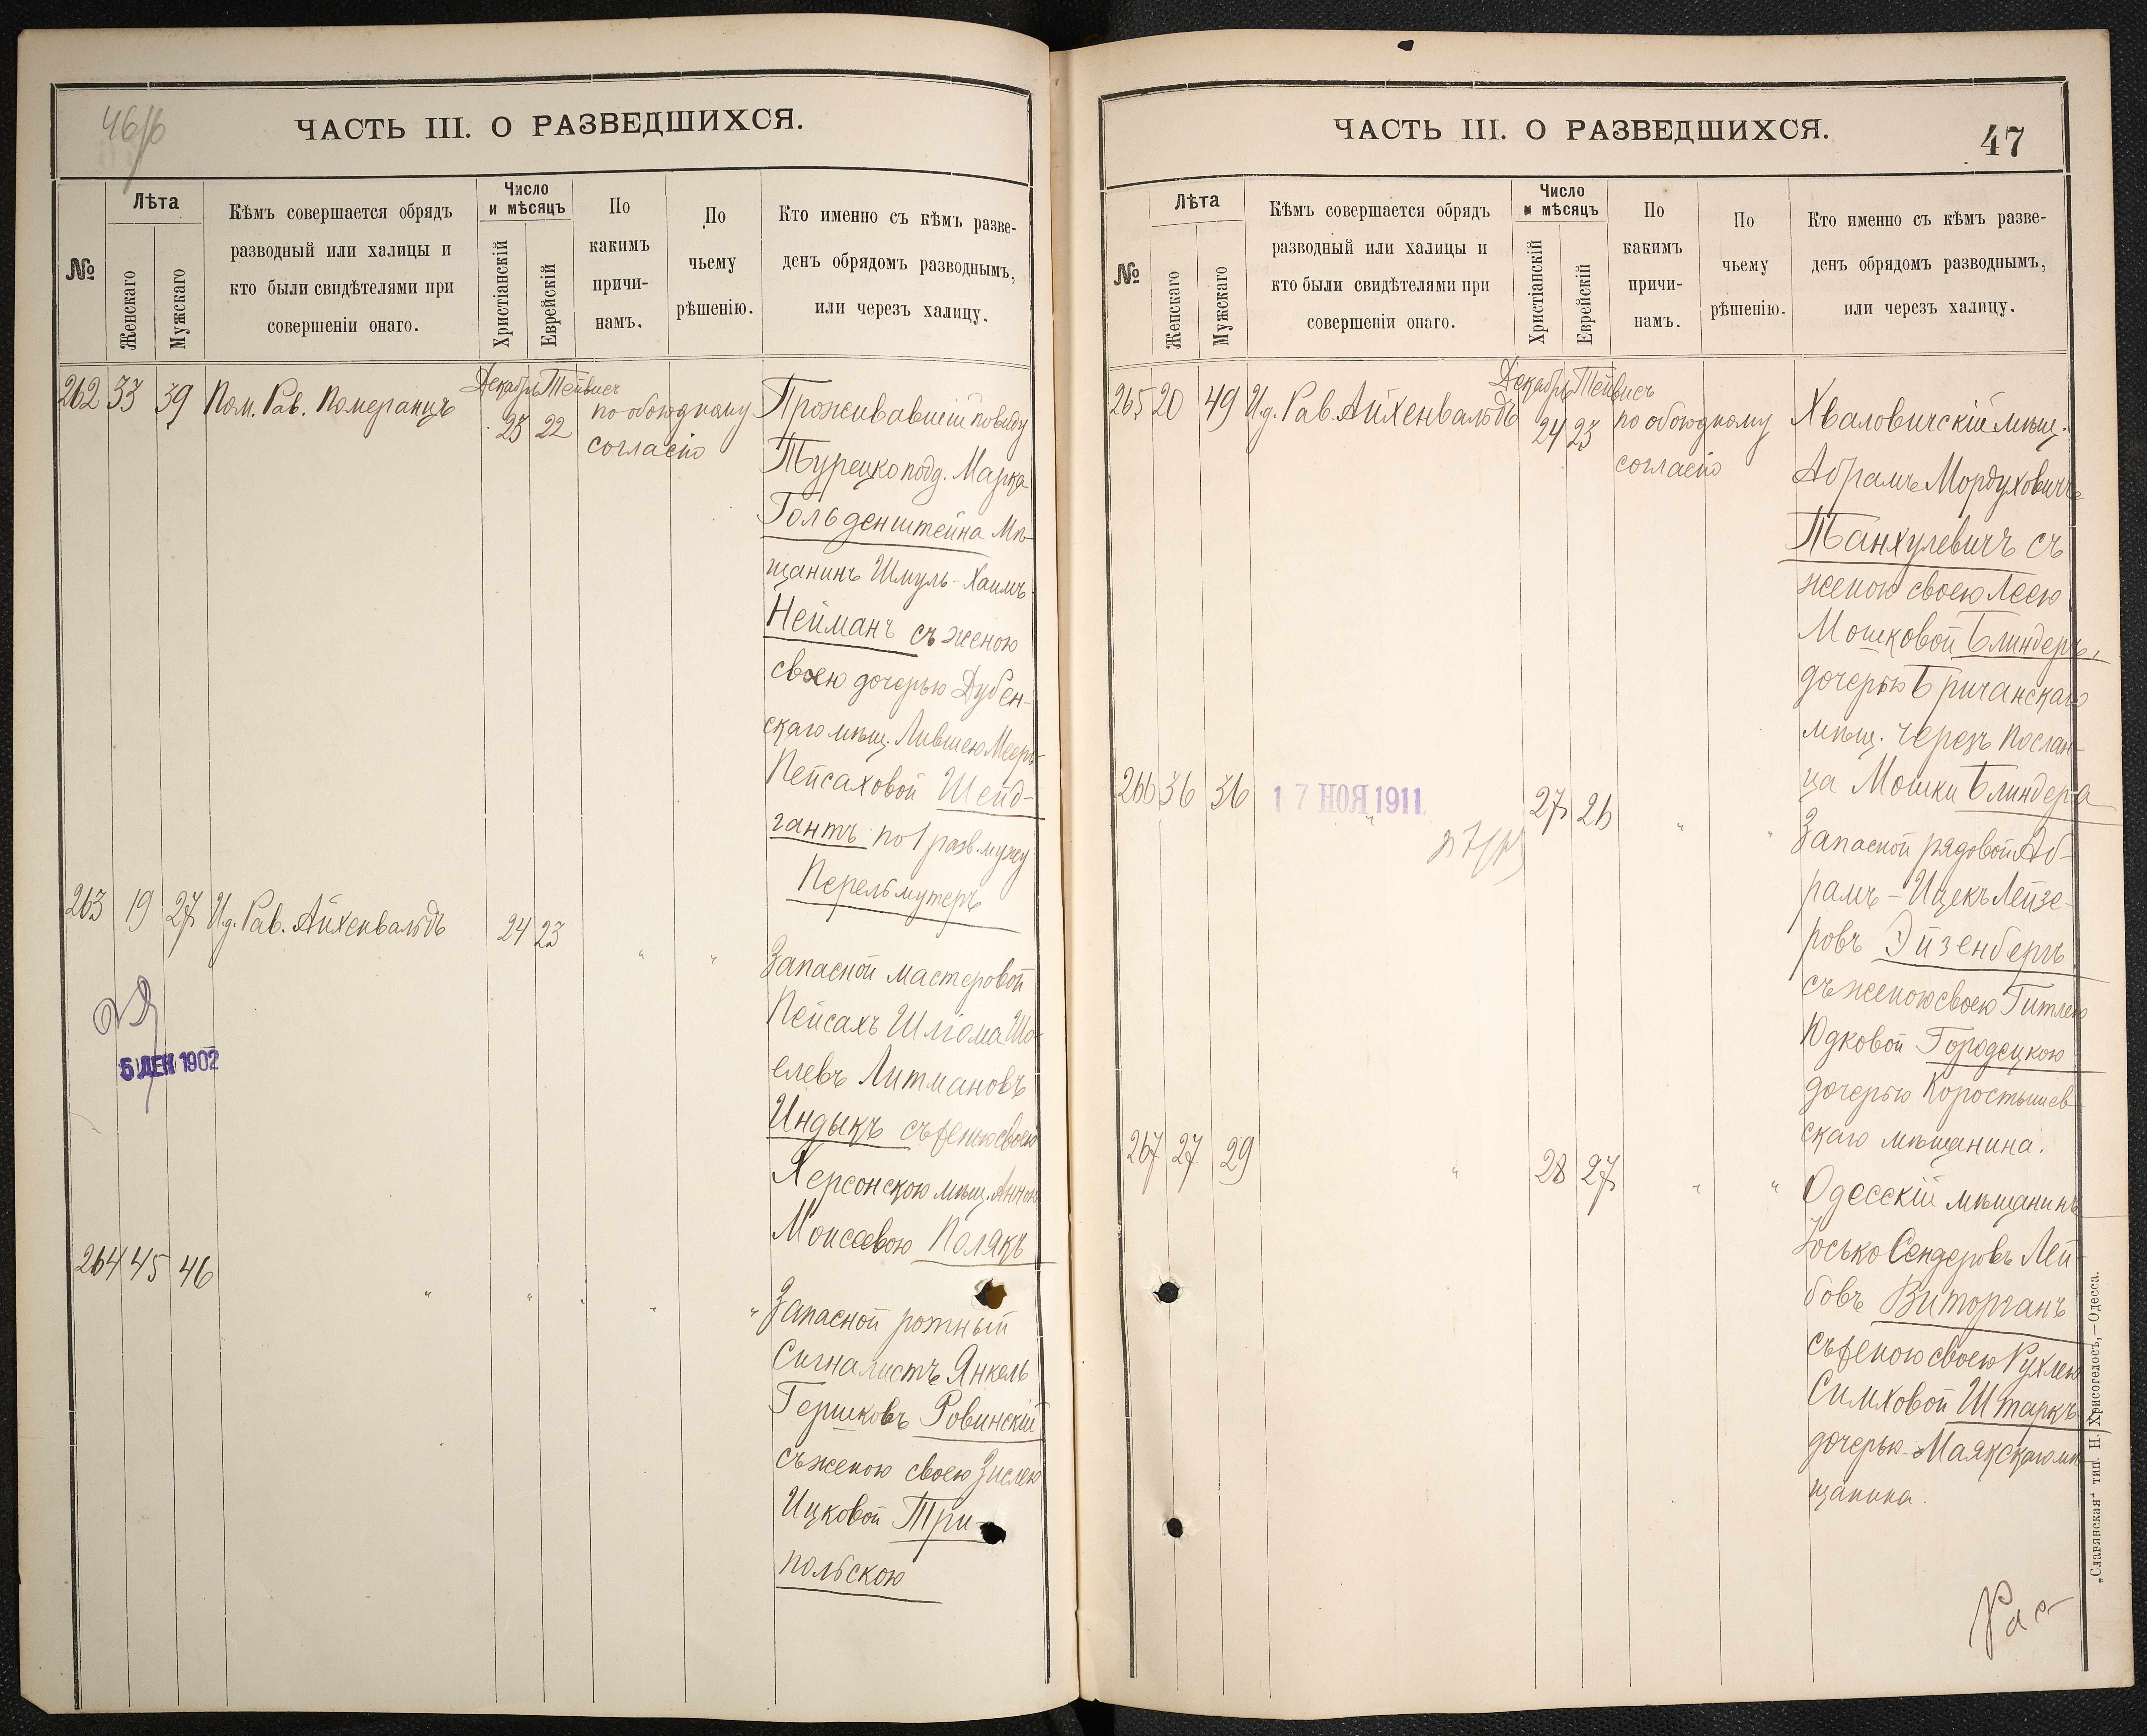 46
ЧАСТЬ III. О РАЗВЕДШИХСЯ.
№
Лѣта
Женскаго
Мужскаго
Кѣмъ совершается обрядъ
разводный или халицы и
кто были свидѣтелями при
совершеніи онаго.
Число
и мѣсяцъ
Христіанскій
Еврейскій
По
какимъ
причи-
намъ.
По
чьему
рѣшенію.
Кто именно съ кѣмъ разве-
денъ обрядомъ разводнымъ,
или черезъ халицу.
262 33 39 Пом. Рав. Померанцъ
Декабрь Тейвисъ
23 22
по обоюдному
согласію
Проживавшій по виду
Турецко подд. Марка
Гольденштейна Мѣ-
щанинъ Шмуль-Хаимъ
Нейманъ съ женою
своею дочерью Дубен-
скаго мѣщ. Лившею Мееръ-
Пейсаховой Шейд-
гантъ по 1 разв. мужу
Перельмутеръ
263 19 27 И.д. Рав. Айхенвальдъ
24 23
" "
5 ДЕК 1902
Запасной мастеровой
Пейсахъ Шліома Шо-
елевъ Литмановъ
Индыкъ съ женою своею
Херсонскою мѣщ. Анною
Моисеевою Полякъ
264 45 46
" " " " "
Запасной ротный
Сигналистъ Янкель
Гершковъ Ровинскій
съ женою своею Зислею
Ицковой Три-
польскою
ЧАСТЬ III. О РАЗВЕДШИХСЯ.
47
№
Лѣта
Женскаго
Мужскаго
Кѣмъ совершается обрядъ
разводный или халицы и
кто были свидѣтелями при
совершеніи онаго.
Число
и мѣсяцъ
Христіанскій
Еврейскій
По
какимъ
причи-
намъ.
По
чьему
рѣшенію.
Кто именно съ кѣмъ разве-
денъ обрядомъ разводнымъ,
или черезъ халицу.
265 20 49 И.д. Рав. Айхенвальдъ
Декабрь Тейвисъ
24 23
по обоюдному
согласію
Хваловичскій мѣщ.
Абрамъ Мордуховичъ
Танхулевичъ съ
женою своею Леею
Мошковой Блиндеръ,
дочерью Бричанскаго
мѣщ. черезъ послан-
ца Мошки Блиндера
266 36 36
17 НОЯ 1911
"
27 26
" "
Запасной рядовой Аб-
рамъ-Ицекъ Лейзе-
ровъ Эйзенбергъ
съ женою своею Гитлею
Юдковой Городецкою
дочерью Коростышев-
скаго мѣщанина.
267 27 29
"
28 27
" "
Одесскій мѣщанинъ
Іосько Сендеровъ Лей-
бовъ Виторганъ
съ женою своею Рухлею
Симховой Штаркъ
дочерью Маякскаго мѣ-
щанина.
Рас-
„Славянская“ тип. Н. Хрисогелосъ,—Одесса.